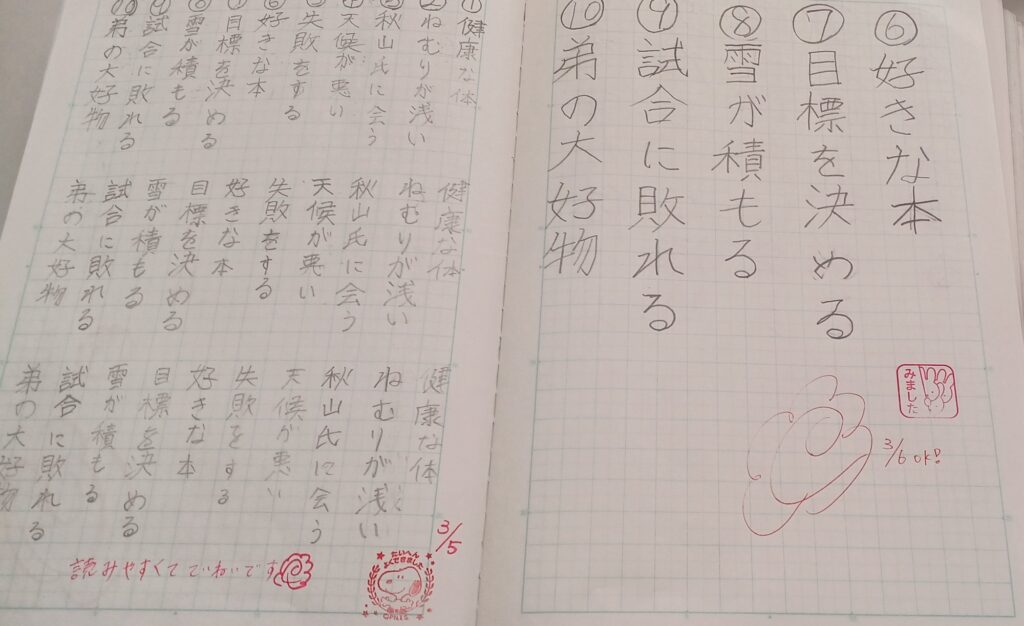 ⑥好きな本
⑦目標を決める
⑧雪が積もる
⑨試合に敗れる
⑩弟の大好物
みました
3/6 OK!
①健康な体
②ねむりが浅い
③秋山氏に会う
④天候が悪い
⑤失敗をする
⑥好きな本
⑦目標を決める
⑧雪が積もる
⑨試合に敗れる
⑩弟の大好物
健康な体
ねむりが浅い
秋山氏に会う
天候が悪い
失敗をする
好きな本
目標を決める
雪が積もる
試合に敗れる
弟の大好物
健康な体
ねむりが浅い
秋山氏に会う
天候が悪い
失敗をする
好きな本
目標を決める
雪が積もる
試合に敗れる
弟の大好物
3/5
読みやすくてていねいです
たいへん
よくできました